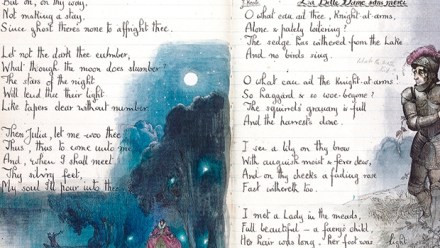 But on, on thy way,
Not making a stay,
Since ghost there's none to affright thee.
Let not the dark thee cumber,
What though the moon does slumber
The stars of the night
Will lend thee their light
Like tapers clear without number.
Then Julia, let me woo thee
Thus, thus to come unto me
And, when I shall meet
Thy silvery feet,
My soul I'll pour into thee
La Belle Dame sans merci
O what can ail thee, Knight-at-arms,
Alone & palely loitering?
The sedge has withered from the Lake
And no birds sing.
O what can ail thee Knight-at-arms!
So haggard & so woe-begone?
The squirrel's granary is full
And the harvest's done.
I see a lily on thy brow
With anguish moist & fever dew,
And on thy cheeks a fading rose
Fast withereth too.
I met a Lady in the meads,
Full beautiful - a faery's child,
Her hair was long, her foot was light